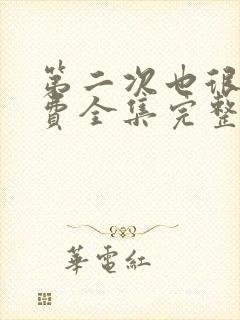 第二次也很
費全集完整
華電紅